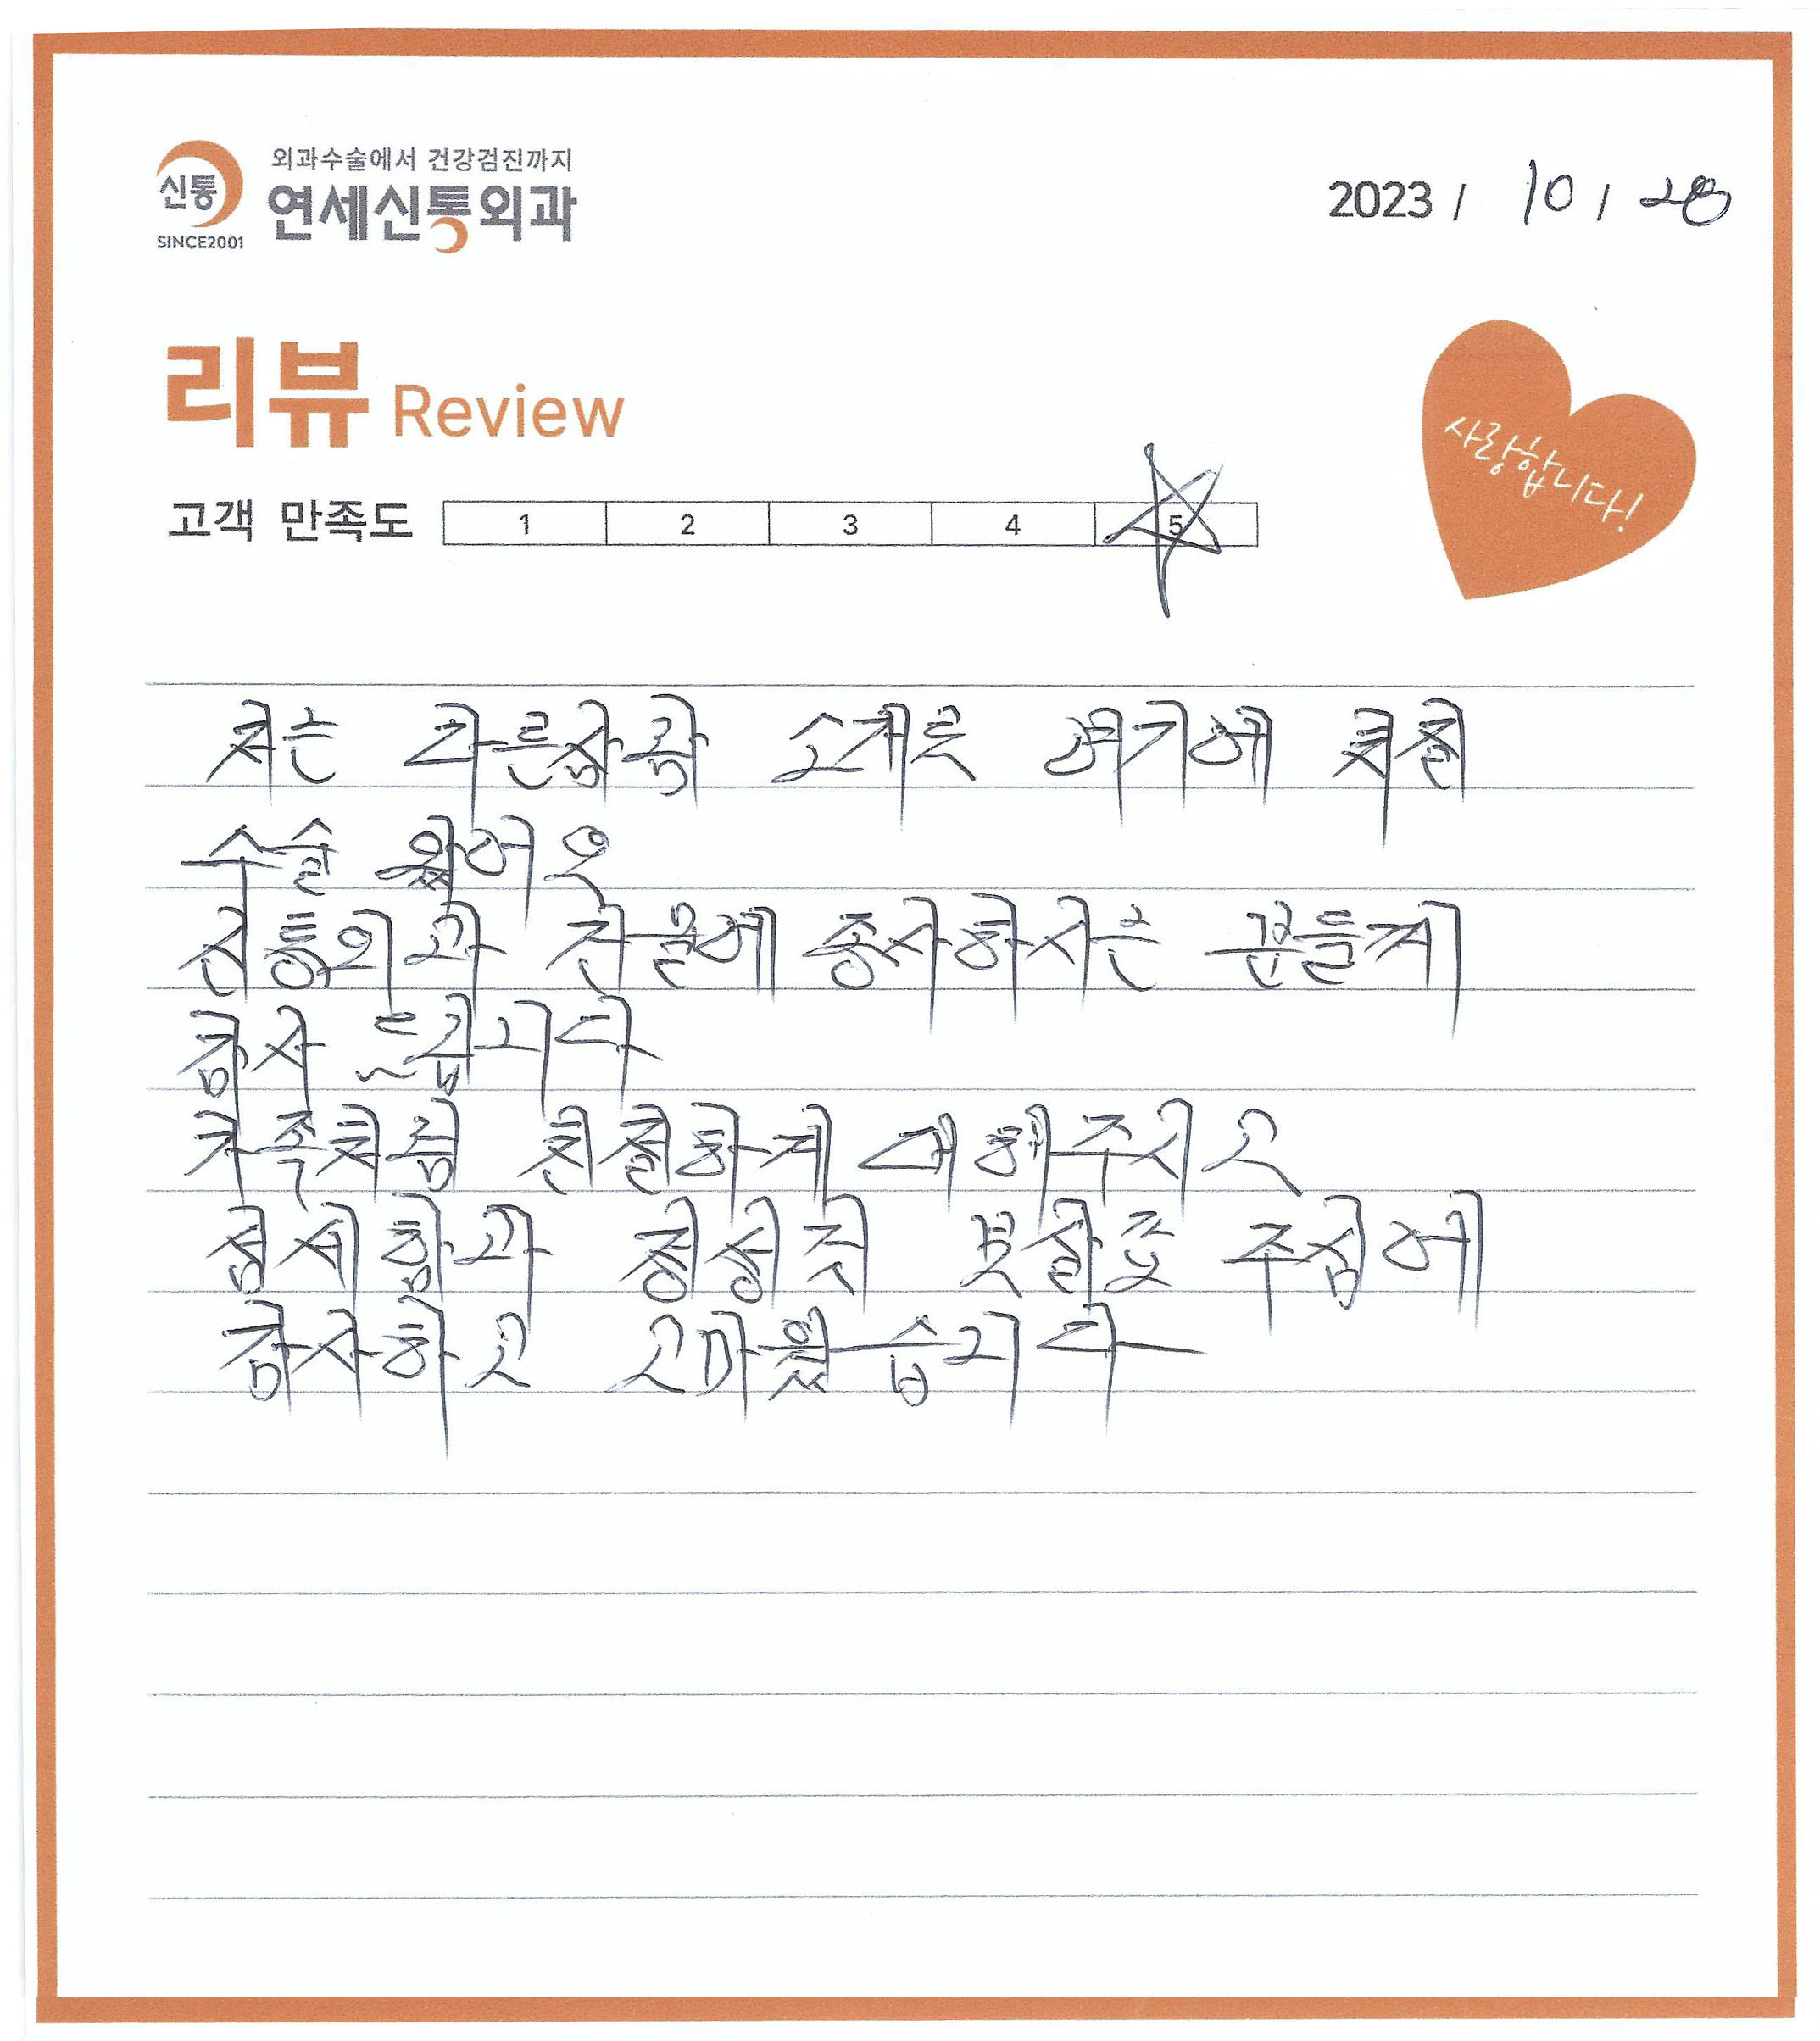 외과수술에서 건강검진까지
신통
연세신통외과
SINCE2001
2023 / 10 / 28
리뷰 Review
사랑합니다!
고객 만족도 1 2 3 4 5
저는 다른사람 소개로 여기에 치질
수술 왔어요
신통외과 건물에 종사하시는 분들게
감사 드립니다
가족처럼 친절하게 대해주시고
섬세함과 정성국 보살중 주심에
감사하고 고마웠습니다